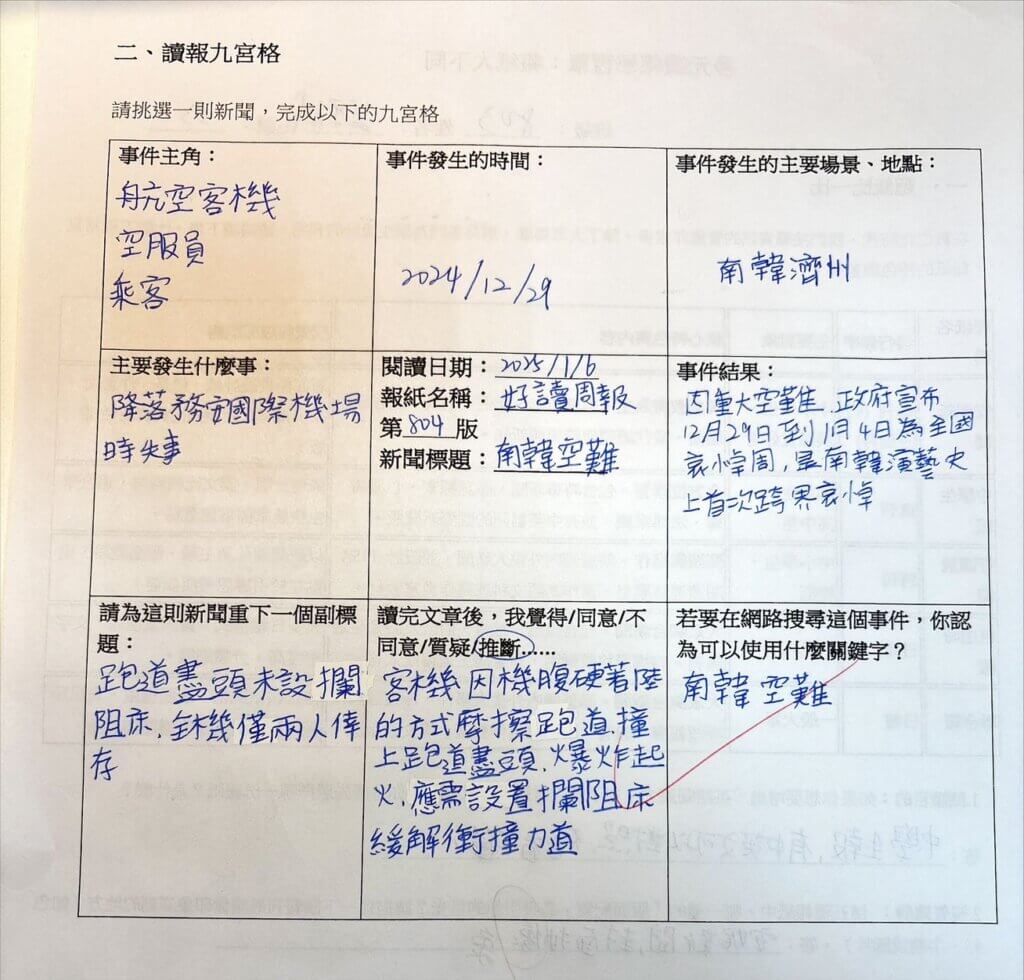 二、讀報九宮格
請挑選一則新聞，完成以下的九宮格
事件主角：
航空客機
空服員
乘客
事件發生的時間：
2024/12/29
事件發生的主要場景、地點：
南韓濟州
主要發生什麼事：
降落務安國際機場
時失事
閱讀日期：2025/1/6
報紙名稱：好讀周報
第804版
新聞標題：南韓空難
事件結果：
因重大空難，政府宣布
12月29日到1月4日為全國
哀悼周，是南韓演藝史
上首次跨界哀悼
請為這則新聞重下一個副標
題：
跑道盡頭未設攔
阻床，全機僅兩人倖
存
讀完文章後，我覺得/同意/不
同意/質疑/推斷……
客機因機腹硬著陸
的方式摩擦跑道撞
上跑道盡頭，爆炸起
火，應需設置攔阻床
緩解衝撞力道
若要在網路搜尋這個事件，你認
為可以使用什麼關鍵字？
南韓空難